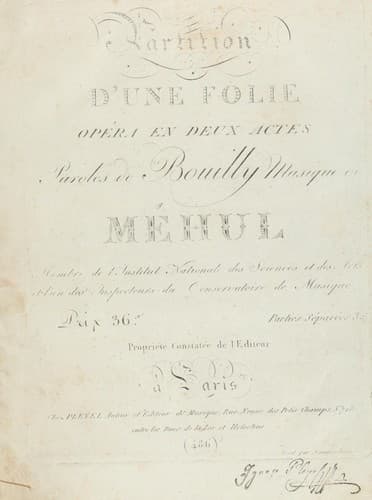 Partition
D'UNE FOLIE
OPÉRA EN DEUX ACTES
Paroles de Bouilly Musique de
MÉHUL
Membre de l'Institut National des Sciences et des Arts
et l'un des Inspecteurs du Conservatoire de Musique
Prix 36.#
Parties Séparées
Propriété Constatée de l'Editeur
à Paris
Chez PLEYEL Auteur et Editeur de Musique, Rue Neuve des Petits Champs, N.º 728
entre les Rues de la Loi et Helvetius
(486)